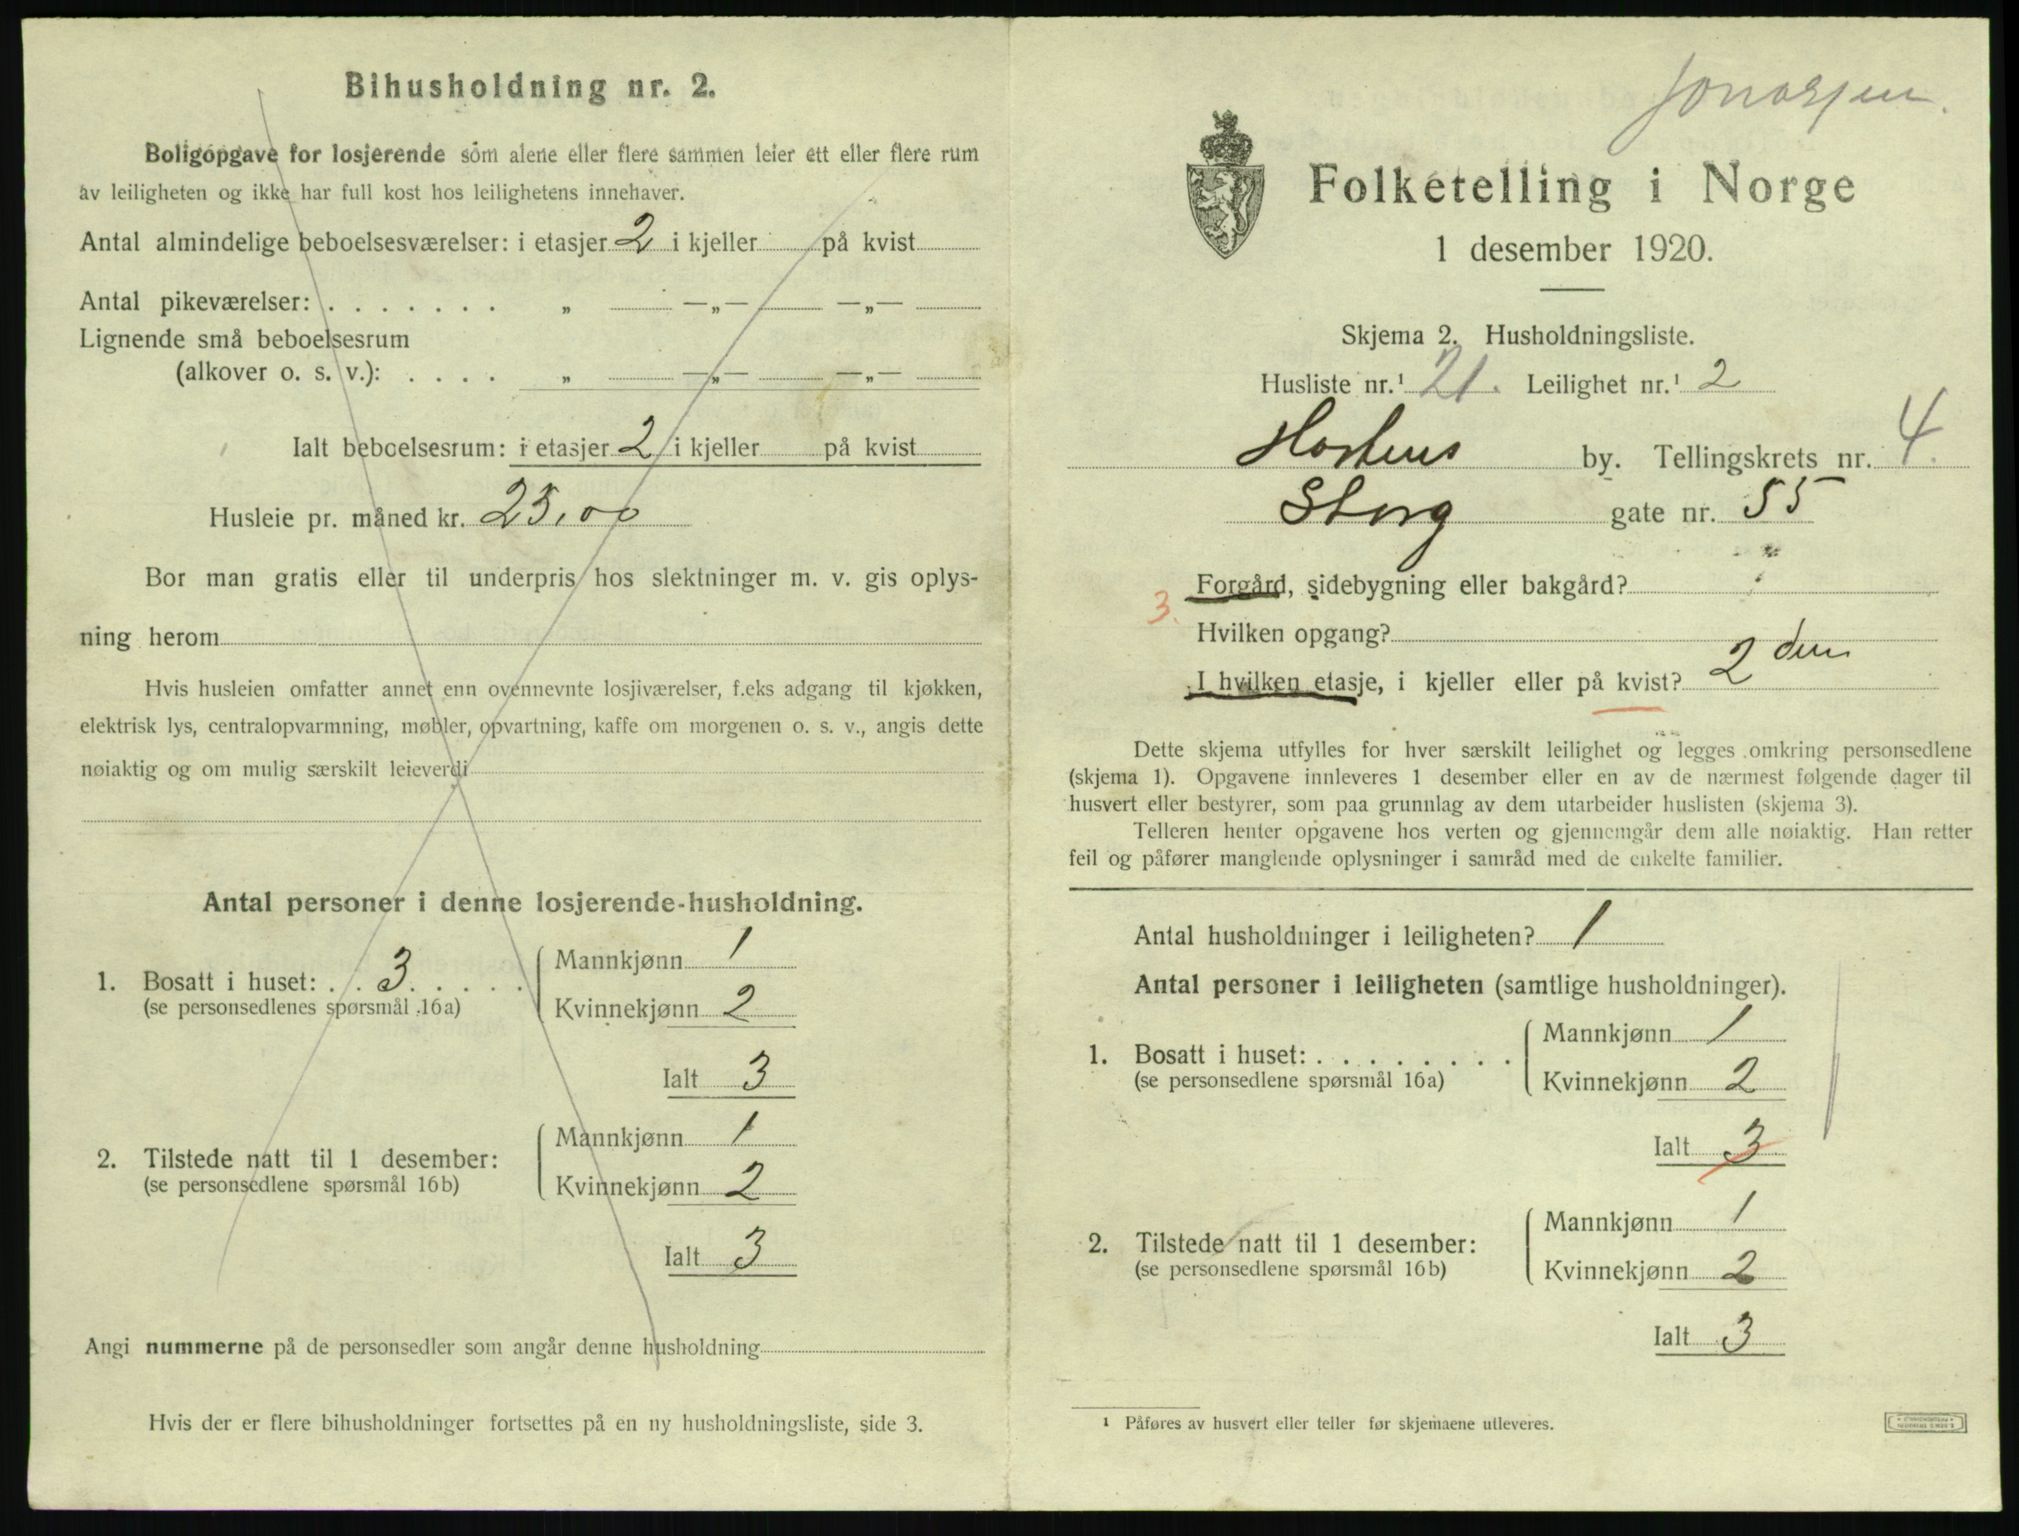 Bihusholdning nr. 2.
Boligopgave for losjerende som alene eller flere sammen leier ett eller flere rum
av leiligheten og ikke har full kost hos leilighetens innehaver.
Antal almindelige beboelsesværelser: i etasjer 2 i kjeller på kvist
Antal pikeværelser: . . . . . . . „ —„— —„—
Lignende små beboelsesrum
(alkover o. s. v.): . . . . „ —„— —„—
Ialt beboelsesrum: i etasjer 2 i kjeller på kvist
Husleie pr. måned kr. 25,00
Bor man gratis eller til underpris hos slektninger m. v. gis oplys-
ning herom
Hvis husleien omfatter annet enn ovennevnte losjiværelser, f.eks adgang til kjøkken,
elektrisk lys, centralopvarmning, møbler, opvartning, kaffe om morgenen o. s. v., angis dette
nøiaktig og om mulig særskilt leieverdi
Antal personer i denne losjerende-husholdning.
1. Bosatt i huset: . . 3. . . . . . Mannkjønn 1
(se personsedlenes spørsmål 16a) Kvinnekjønn 2
Ialt 3
2. Tilstede natt til 1 desember: Mannkjønn 1
(se personsedlene spørsmål 16b) Kvinnekjønn 2
Ialt 3
Angi nummerne på de personsedler som angår denne husholdning
Hvis der er flere bihusholdninger fortsettes på en ny husholdningsliste, side 3.
Jonassen.
Folketelling i Norge
1 desember 1920.
Skjema 2. Husholdningsliste.
Husliste nr.¹ 21. Leilighet nr.¹ 2
Hortens by. Tellingskrets nr. 4.
Storg gate nr. 55
Forgård, sidebygning eller bakgård?
3.
Hvilken opgang?
I hvilken etasje, i kjeller eller på kvist? 2 den
Dette skjema utfylles for hver særskilt leilighet og legges omkring personsedlene
(skjema 1). Opgavene innleveres 1 desember eller en av de nærmest følgende dager til
husvert eller bestyrer, som paa grunnlag av dem utarbeider huslisten (skjema 3).
Telleren henter opgavene hos verten og gjennemgår dem alle nøiaktig. Han retter
feil og påfører manglende oplysninger i samråd med de enkelte familier.
Antal husholdninger i leiligheten? 1
Antal personer i leiligheten (samtlige husholdninger).
1. Bosatt i huset: . . . . . . . . Mannkjønn 1
(se personsedlene spørsmål 16a) Kvinnekjønn 2
Ialt 3
2. Tilstede natt til 1 desember: Mannkjønn 1
(se personsedlene spørsmål 16b) Kvinnekjønn 2
Ialt 3
¹ Påføres av husvert eller teller før skjemaene utleveres.